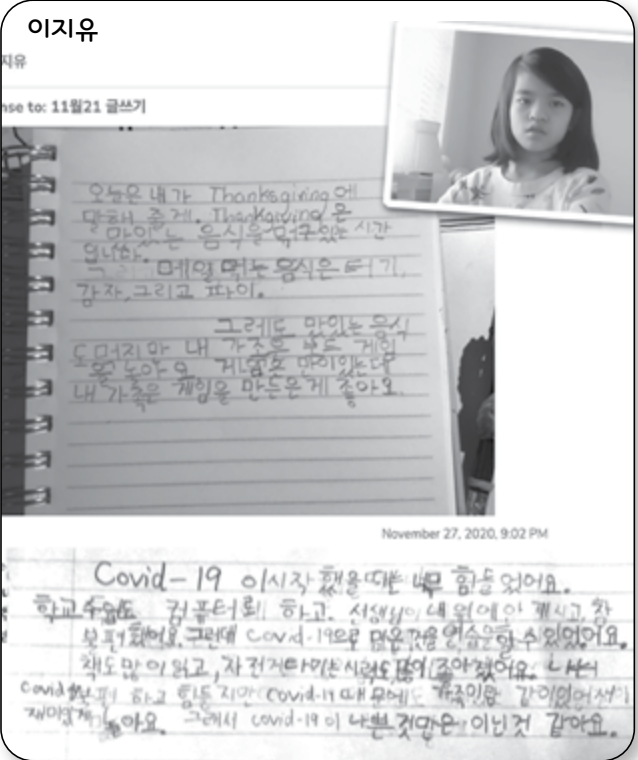 이지유
지유
nse to: 11월21 글쓰기
오늘은 내가 Thanksgiving에
말해 줄게. Thanksgiving은
맛있는 음식을 먹구있는 시간
입니다.
메일 먹는 음식은 터기,
감자, 그리고 파이.
그레도 맛있는 음식
도 먹지만 내 가족은 보드 게임
놀아요. 게임도 많이있는데
내 가족은 게임을 만든은게 좋아요.
November 27, 2020, 9:02 PM
Covid-19 이시작 했을때는 너무 힘들었어요.
학교수업도 컴퓨터로 하고. 선생님이 내 옆에 안 계시고, 참
불편했어요. 그런데 Covid-19으로 많은것을 연습을할 수 있었어요.
책도많이읽고, 자전거타기는시력도많이 좋아졌어요. 나는
Covid 불편 하고 힘들지만 Covid-19 때문에 가족이랑 같이있어서
재미있게 놀아요. 그래서 covid-19이 나쁜것만은 이닌것 같아요.